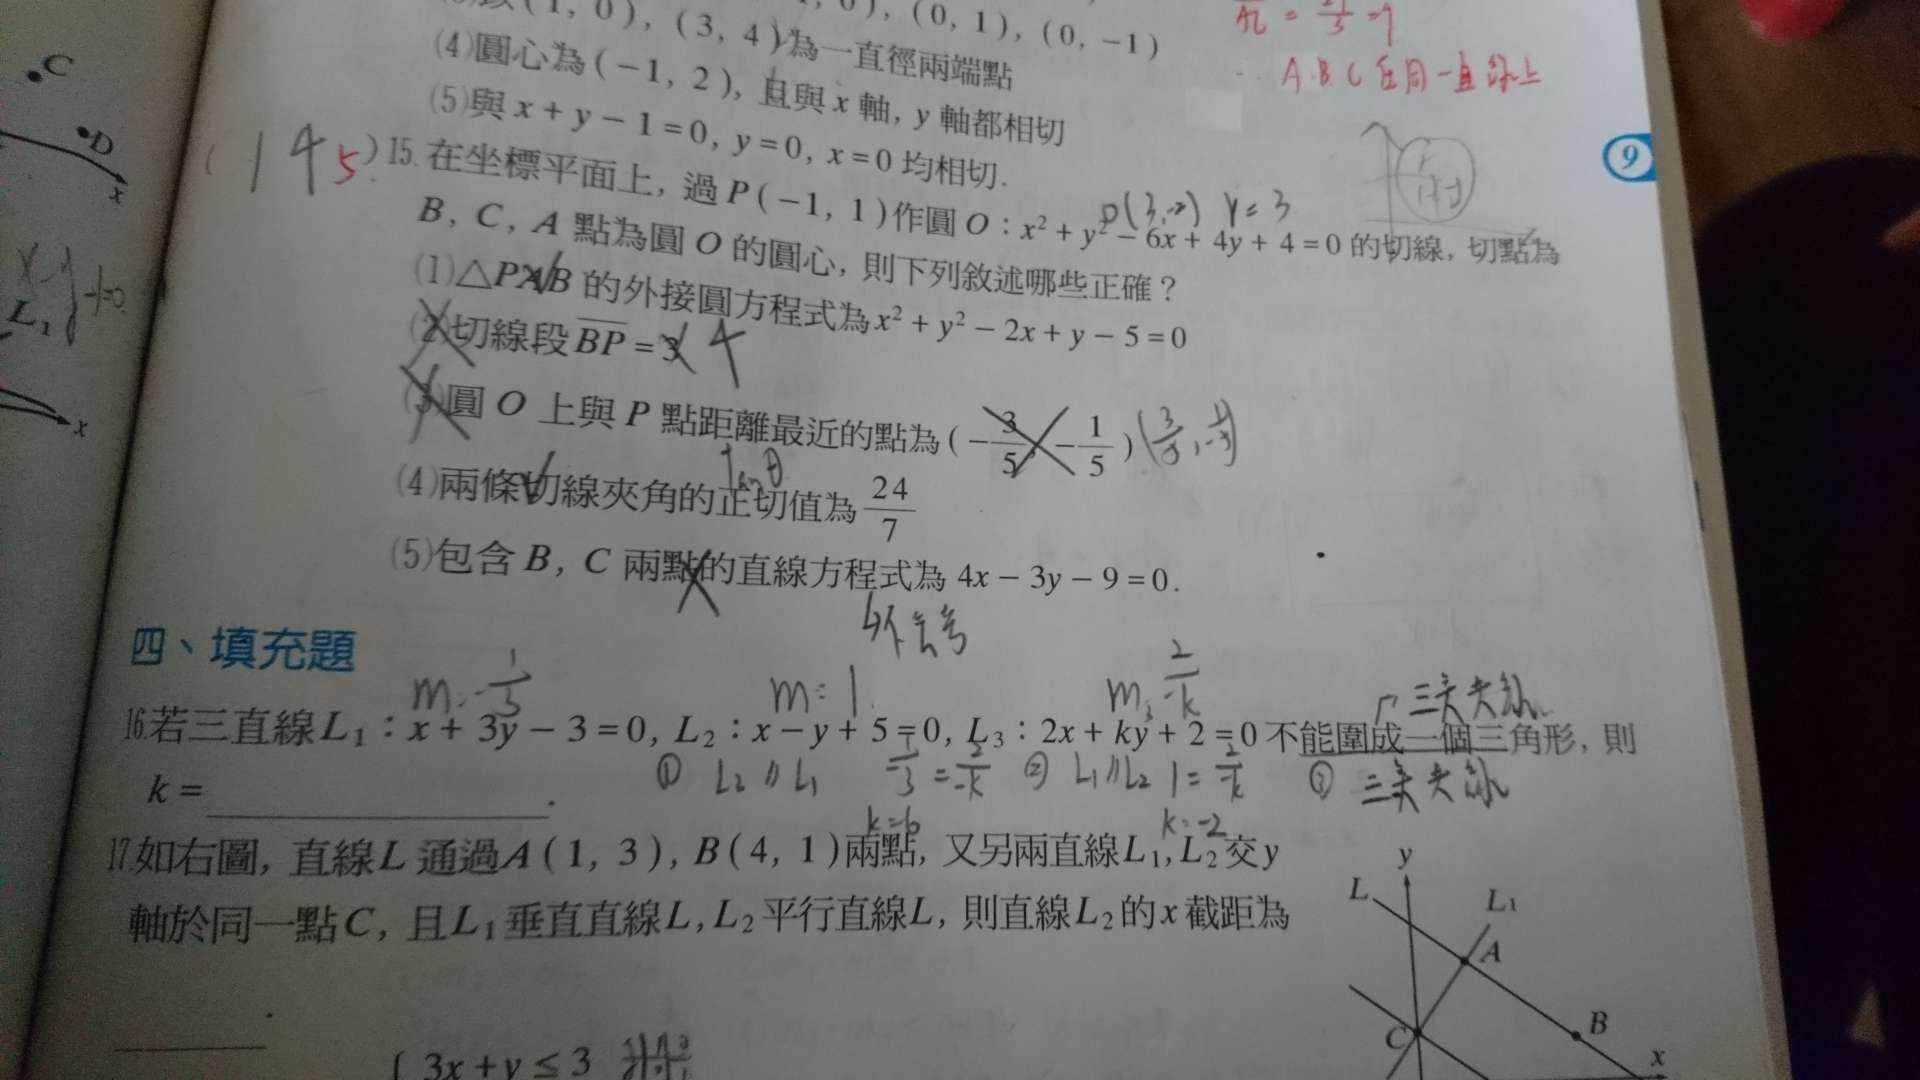 (1, 0), (3, 4)為一直徑兩端點
(0, 1), (0, -1)
(4)圓心為(-1, 2), 且與x軸, y軸都相切
(5)與x+y-1=0, y=0, x=0均相切.
A.B.C在同一直線上
9
C
D
x
L₁
x
(145)15.在坐標平面上, 過P(-1, 1)作圓O:x²+y²-6x+4y+4=0的切線, 切點為
O(3,-2) r=3
B, C, A點為圓O的圓心, 則下列敘述哪些正確?
(1)△PAB的外接圓方程式為x²+y²-2x+y-5=0
(2)切線段BP=3 4
(3)圓O上與P點距離最近的點為(-3/5, -1/5) (3/5, -1/5)
tanθ
(4)兩條切線夾角的正切值為24/7
(5)包含B, C兩點的直線方程式為4x-3y-9=0.
四、填充題
m=-1/3 m=1 m=2/-k 三線共點
16.若三直線L₁:x+3y-3=0, L₂:x-y+5=0, L₃:2x+ky+2=0不能圍成一個三角形, 則
k=
① L₃//L₁ -1/3=2/-k ② L₁//L₂ 1=2/-k ③
k=6 k=-2
17.如右圖, 直線L通過A(1, 3), B(4, 1)兩點, 又另兩直線L₁, L₂交y
軸於同一點C, 且L₁垂直直線L, L₂平行直線L, 則直線L₂的x截距為
.
y
L
L₁
A
B
C
x
3x+y≤3